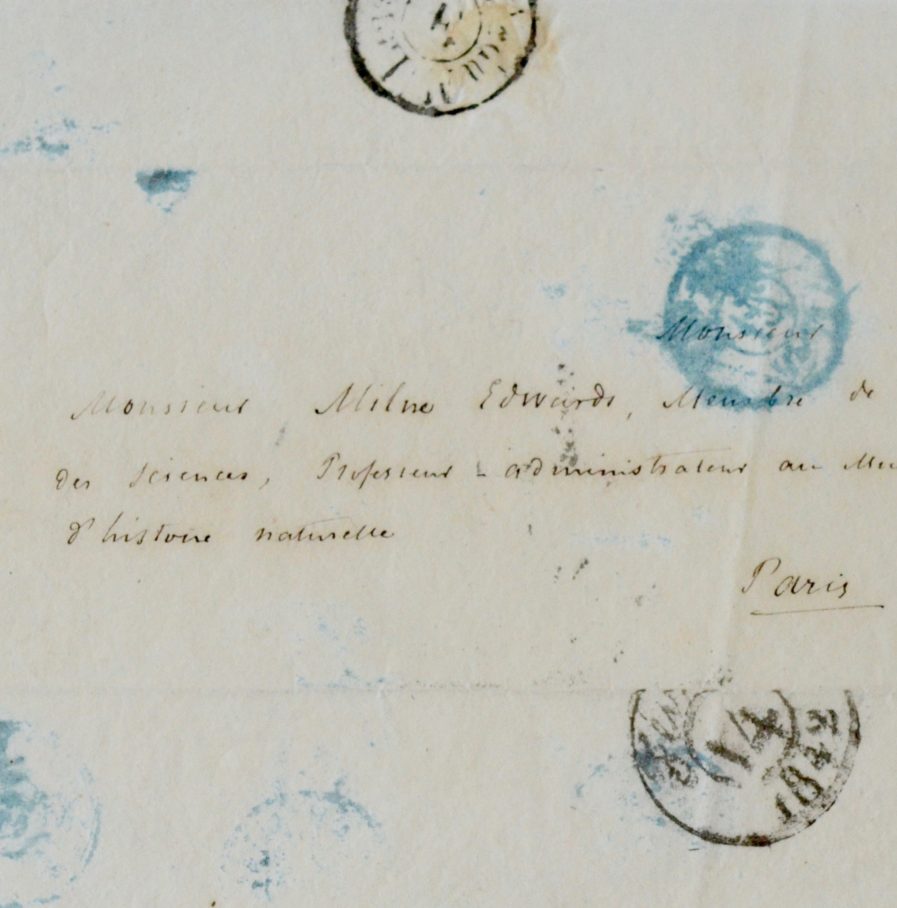 Monsieur
Monsieur Milne Edwards, Membre de
des Sciences, Professeur - administrateur au Mu
d'histoire naturelle
Paris
14
1842